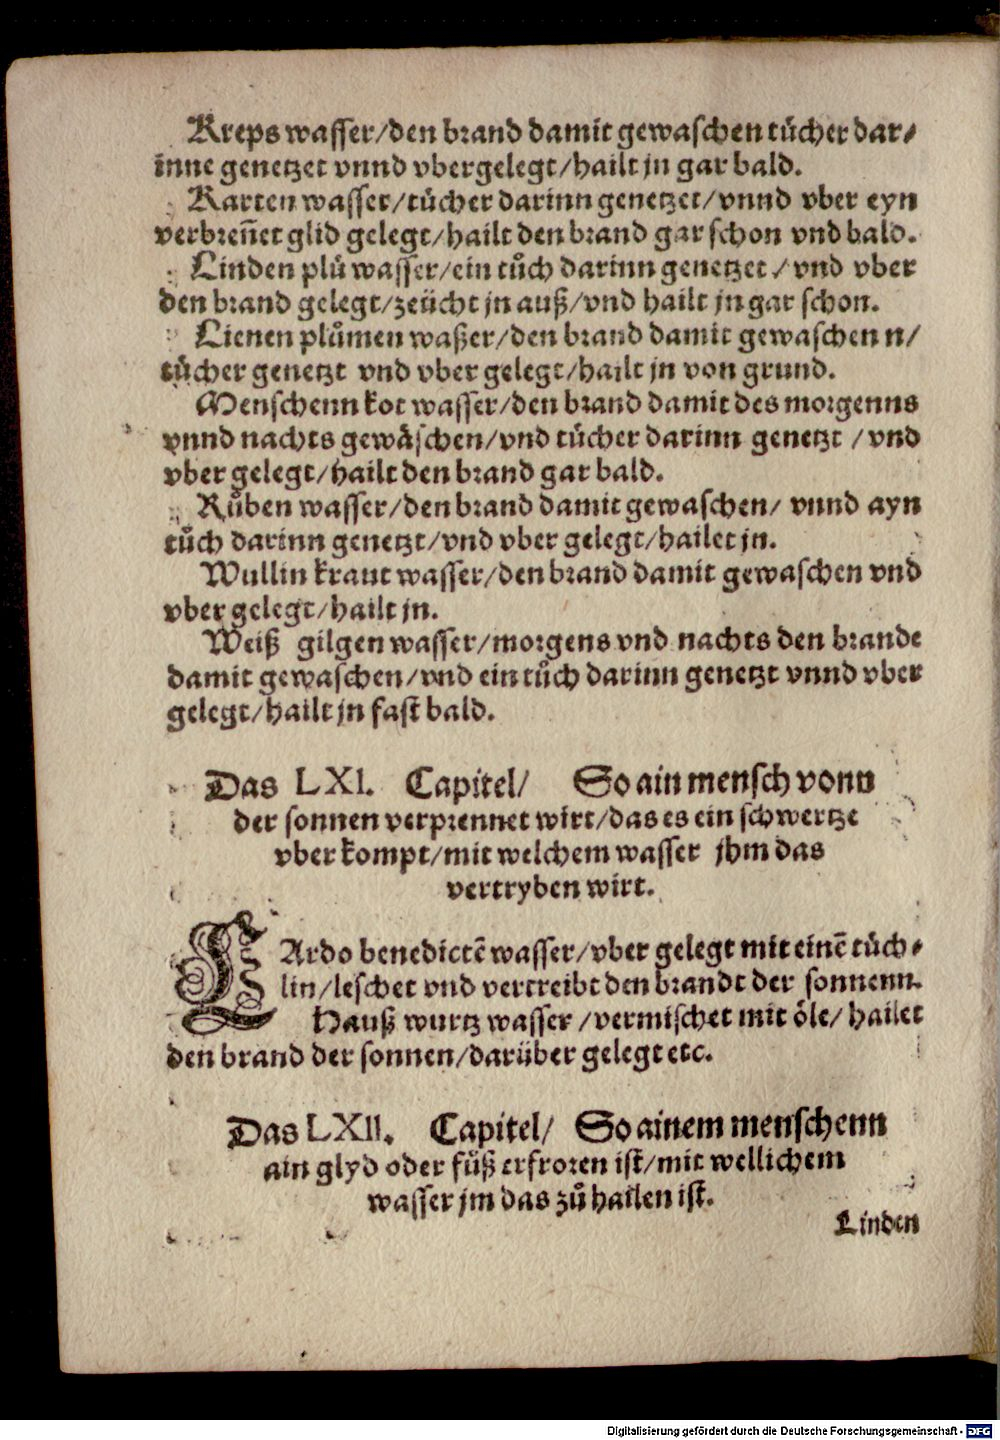 Kreps wasser/den brand damit gewaschen tuͤcher dar⸗
inne genetzet vnnd vbergelegt/hailt jn gar bald.
Karten wasser/tuͤcher darinn genetzet/vnnd vber eyn
verbreñet glid gelegt/hailt den brand gar schon vnd bald.
Linden pluͤ wasser/ein tuͦch darinn genetzet/vnd vber
den brand gelegt/zeücht jn auß/vnd hailt jn gar schon.
Lienen pluͦmen waßer/den brand damit gewaschen n/
tuͤcher genetzt vnd vber gelegt/hailt jn von grund.
Menschenn kot wasser/den brand damit des morgenns
vnnd nachts gewaͤschen/vnd tuͤcher darinn genetzt /vnd
vber gelegt/hailt den brand gar bald.
Ruͦben wasser/den brand damit gewaschen/ vnnd ayn
tuͦch darinn genetzt/vnd vber gelegt/hailet jn.
Wullin kraut wasser/den brand damit gewaschen vnd
vber gelegt/hailt jn.
Weiß gilgen wasser/morgens vnd nachts den brande
damit gewaschen/vnd ein tuͦch darinn genetzt vnnd vber
gelegt/hailt jn fast bald.
Das LXI. Capitel/ So ain mensch vonn
der sonnen verprennet wirt/das es ein schwertze
vber kompt/mit welchem wasser jhm das
vertryben wirt.
CArdo benedictē wasser/vber gelegt mit einē tuͤch⸗
lin/leschet vnd vertreibt den brandt der sonnenn.
Hauß wurtz wasser /vermischet mit oͤle/ hailet
den brand der sonnen/darüber gelegt etc.
Das LXII. Capitel/ So ainem menschenn
ain glyd oder fuͤß erfroren ist/mit wellichem
wasser jm das zuͦ hailen ist.
Linden
Digitalisierung gefördert durch die Deutsche Forschungsgemeinschaft - DFG